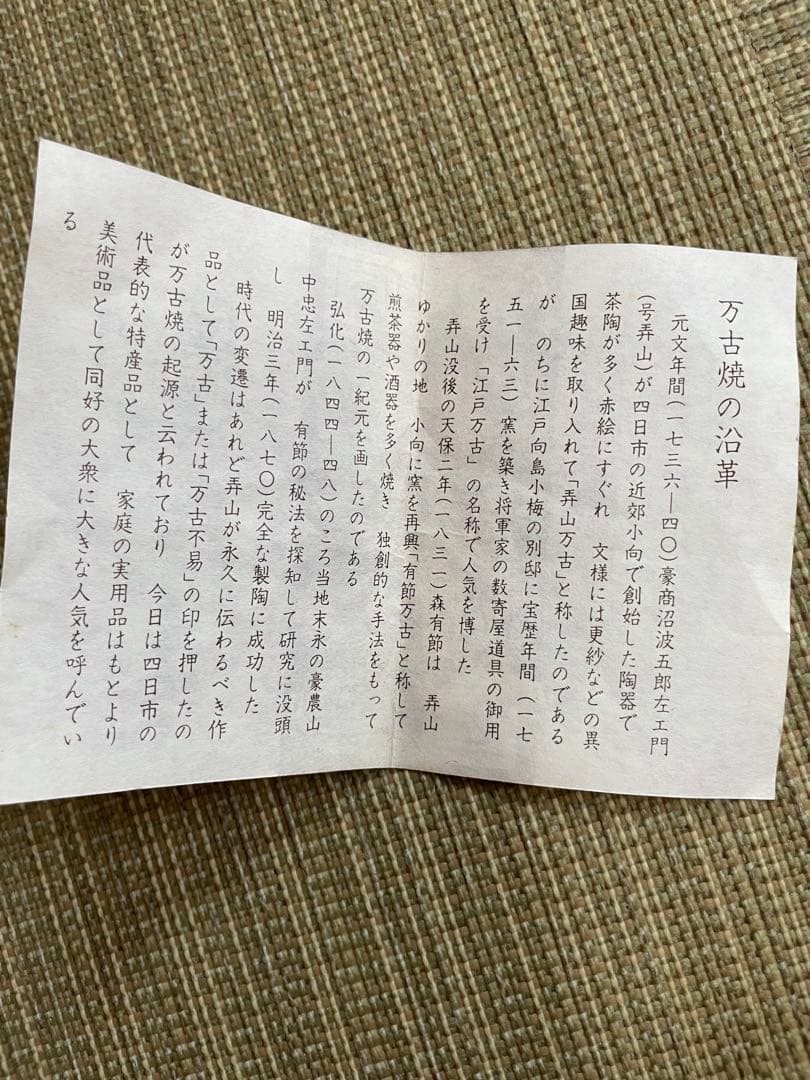 万古焼の沿革
元文年間(一七三六―四〇)豪商沼波五郎左エ門
(号弄山)が四日市の近郊小向で創始した陶器で
茶陶が多く赤絵にすぐれ 文様には更紗などの異
国趣味を取り入れて「弄山万古」と称したのである
が のちに江戸向島小梅の別邸に宝歴年間(一七
五一―六三) 窯を築き将軍家の数寄屋道具の御用
を受け「江戸万古」の名称で人気を博した
弄山没後の天保二年(一八三一)森有節は 弄山
ゆかりの地 小向に窯を再興「有節万古」と称して
煎茶器や酒器を多く焼き 独創的な手法をもって
万古焼の一紀元を画したのである
弘化(一八四四―四八)のころ当地末永の豪農山
中忠左エ門が 有節の秘法を探知して研究に没頭
し 明治三年(一八七〇)完全な製陶に成功した
時代の変遷はあれど弄山が永久に伝わるべき作
品として「万古」または「万古不易」の印を押したの
が万古焼の起源と云われており 今日は四日市の
代表的な特産品として 家庭の実用品はもとより
美術品として同好の大衆に大きな人気を呼んでい
る